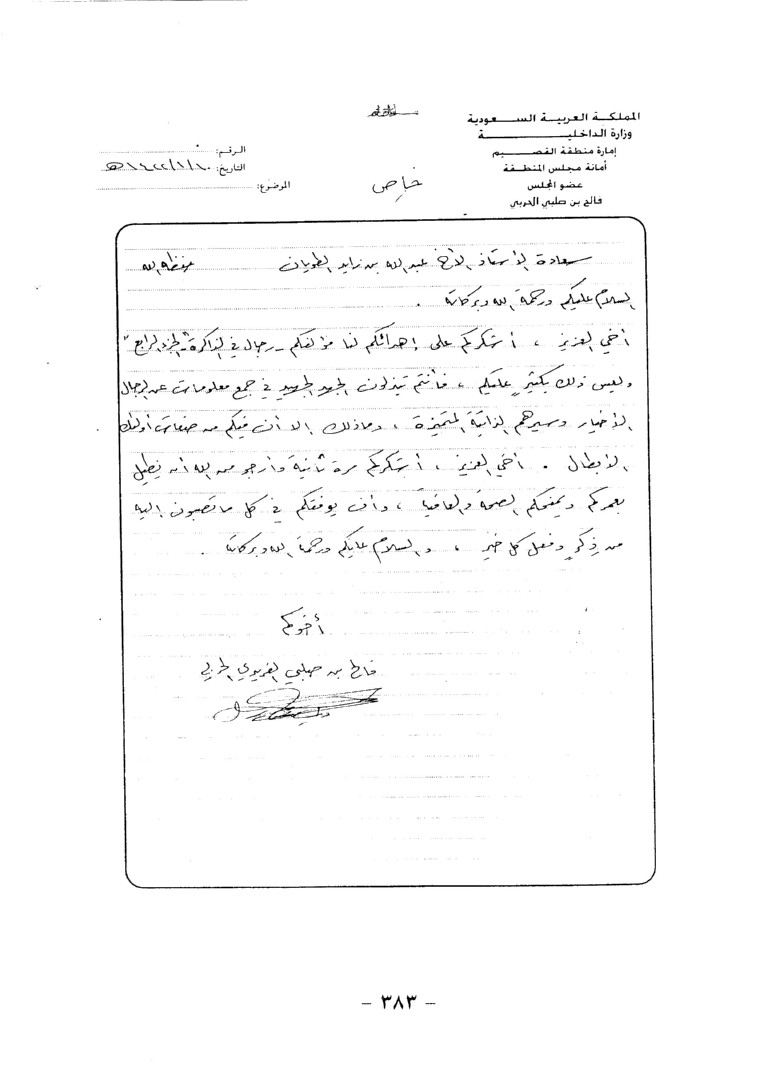 المملكة العربية السعودية
وزارة الداخلية
إمارة منطقة القصيم
أمانة مجلس المنطقة
عضو المجلس
فالح بن صلبي الحربي
خاص
الرقم:
التاريخ: ١٤٢٢/١/١٠هـ
الموضوع:
سعادة الأستاذ الأخ عبد الله بن زايد الطويان حفظه الله
السلام عليكم ورحمة الله وبركاته .
أخي العزيز ، أشكركم على إهدائكم لنا مؤلفكم - رجال في الذاكرة - الجزء الرابع"
وليس ذلك بكثيرٍ عليكم ، فأنتم تبذلون الجهد الجهيد في جمع معلومات عن الرجال
الأخيار وسيرهم الذاتية المتميزة ، وماذلك إلا أن فيكم من صفات أولئك
الأبطال . أخي العزيز ، أشكركم مرة ثانية وأرجو من الله أن يطيل
بعمركم ويمنحكم الصحة والعافية ، وأن يوفقكم في كل ما تصبون إليه
من ذِكرٍ وفعل كل خيرٍ ، والسلام عليكم ورحمة الله وبركاته .
أخوكم
فالح بن صلبي الفريدي الحربي
- ٣٨٣ -